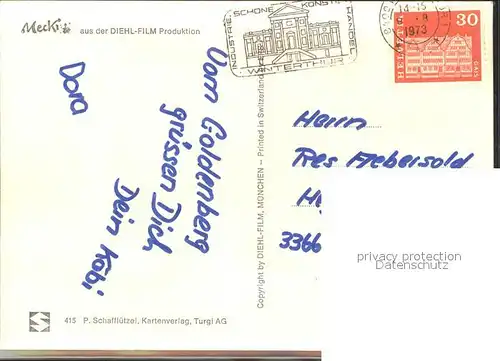 Mecki
aus der DIEHL-FILM Produktion
Vom Goldenberg
grüssen Dich
Dein Köbi
Dora
415 P. Schafflützel, Kartenverlag, Turgi AG
Copyright by DIEHL-FILM, MÜNCHEN – Printed in Switzerland
INDUSTRIE SCHÖNE KÜNSTE HANDEL
WINTERTHUR
14-15
1973
HELVETIA
30
GAIS
Herrn
3366
privacy protection
Datenschutz